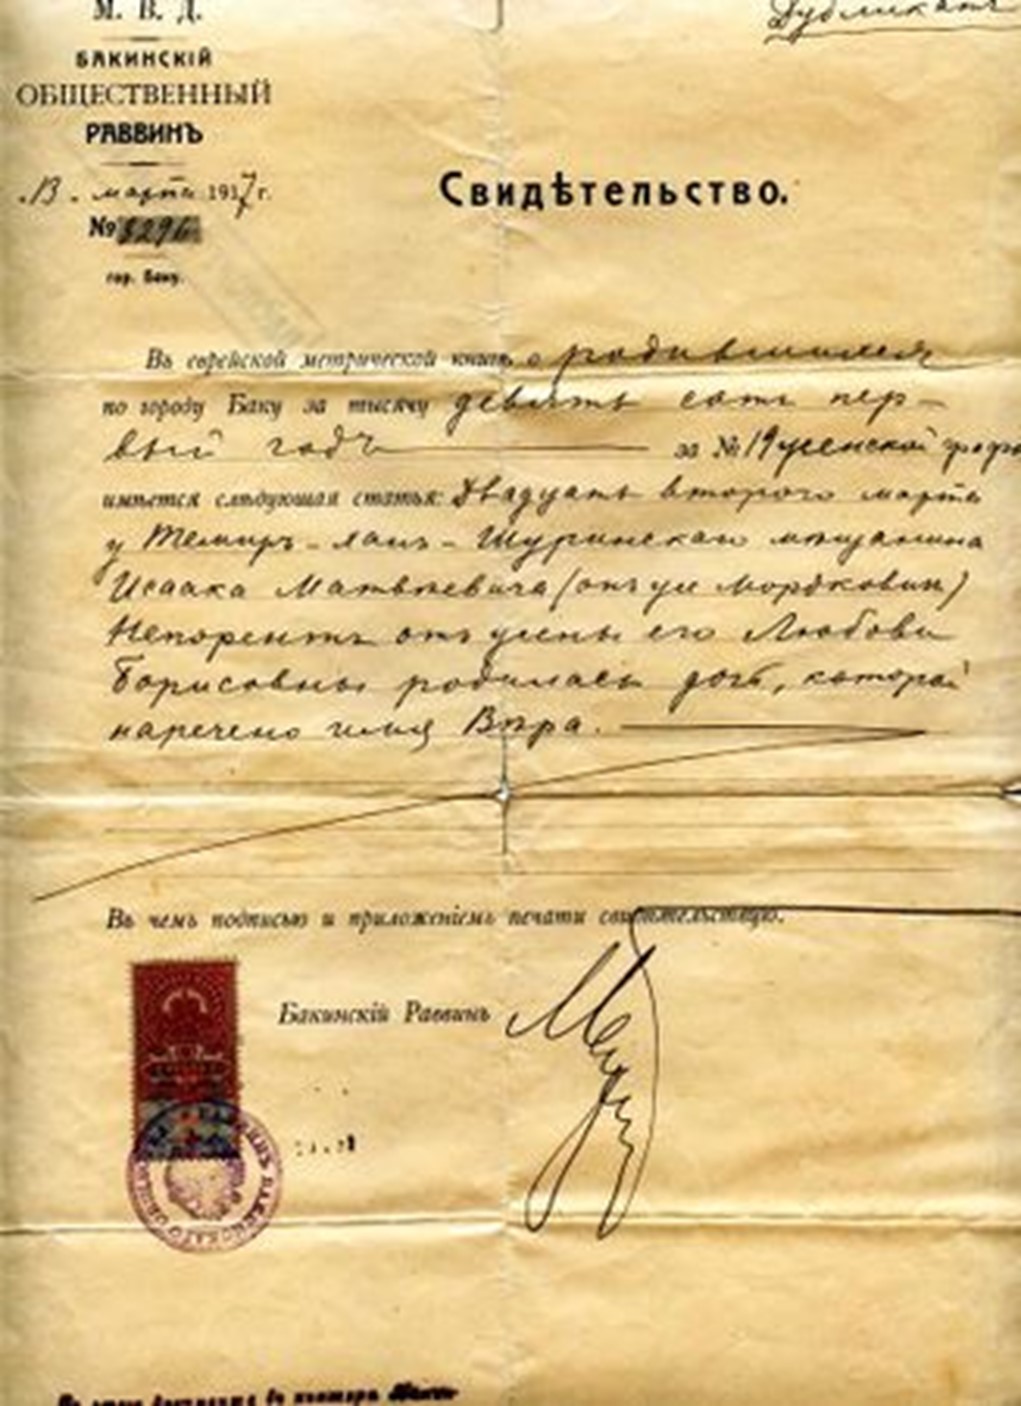 М. В. Д.
Дубликатъ
БАКИНСКІЙ
ОБЩЕСТВЕННЫЙ
РАВВИНЪ
13. марта 1917 г.
№ 3296
гор. Баку.
Свидѣтельство.
Въ еврейской метрической книгѣ о родившихся
по городу Баку за тысячу девять сотъ пер-
вый годъ за № 19 женской
имѣется слѣдующая статья: Двадцать второго марта
у Темиръ-ханъ-Шуринскаго мѣщанина
Исаака Матвѣевича (онъ же Мордковичъ)
Непорентъ отъ жены его Любови
Борисовны родилась дочь, которой
наречено имя Вѣра.
Въ чемъ подписью и приложеніемъ печати свидѣтельствую.
Бакинскій Раввинъ